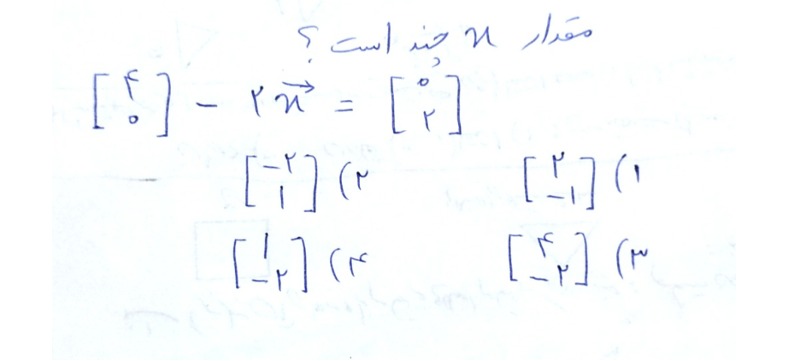 مقدار x چند است ؟
[۴ ۰] - ۲x⃗ = [۰ ۲]
۱) [۲ -۱]
۲) [-۲ ۱]
۳) [۴ -۲]
۴) [۱ -۲]